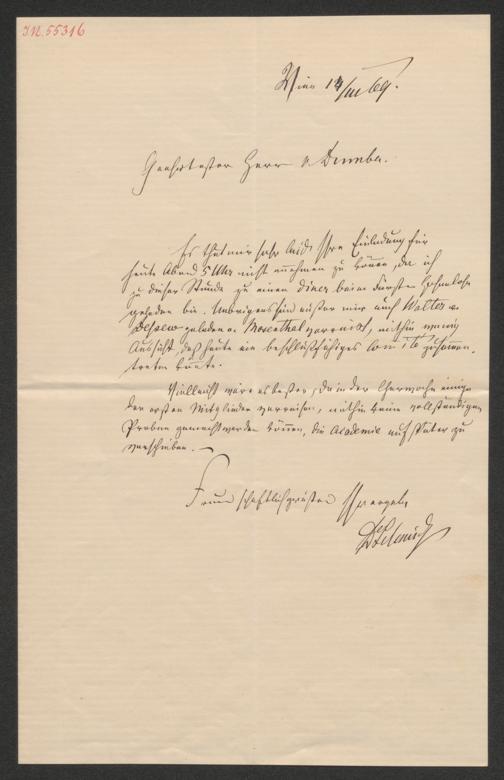 I.N. 55316
Wien 14/III 69.
Geehrtester Herr v. Dumba.
Es thut mir sehr leid Ihre Einladung für
heute Abend 5 Uhr nicht annehmen zu können, da ich
zu dieser Stunde zu einem diner beim Fürsten Hohenlohe
geladen bin. Übrigens sind außer mir auch Walter u.
Dessoff geladen u. Mosenthal verreist, mithin wenig
Aussicht, daß heute ein beschlußfähiges Comité zusammen,
treten könnte.
Vielleicht wäre es besser, da in der Charwoche einige
der ersten Mitglieder verreisen, mithin keine vollständigen
Proben gemacht werden können, die Academie auf später zu
verschieben. –
Freundschaftlich grüßend Ihr ergeb.